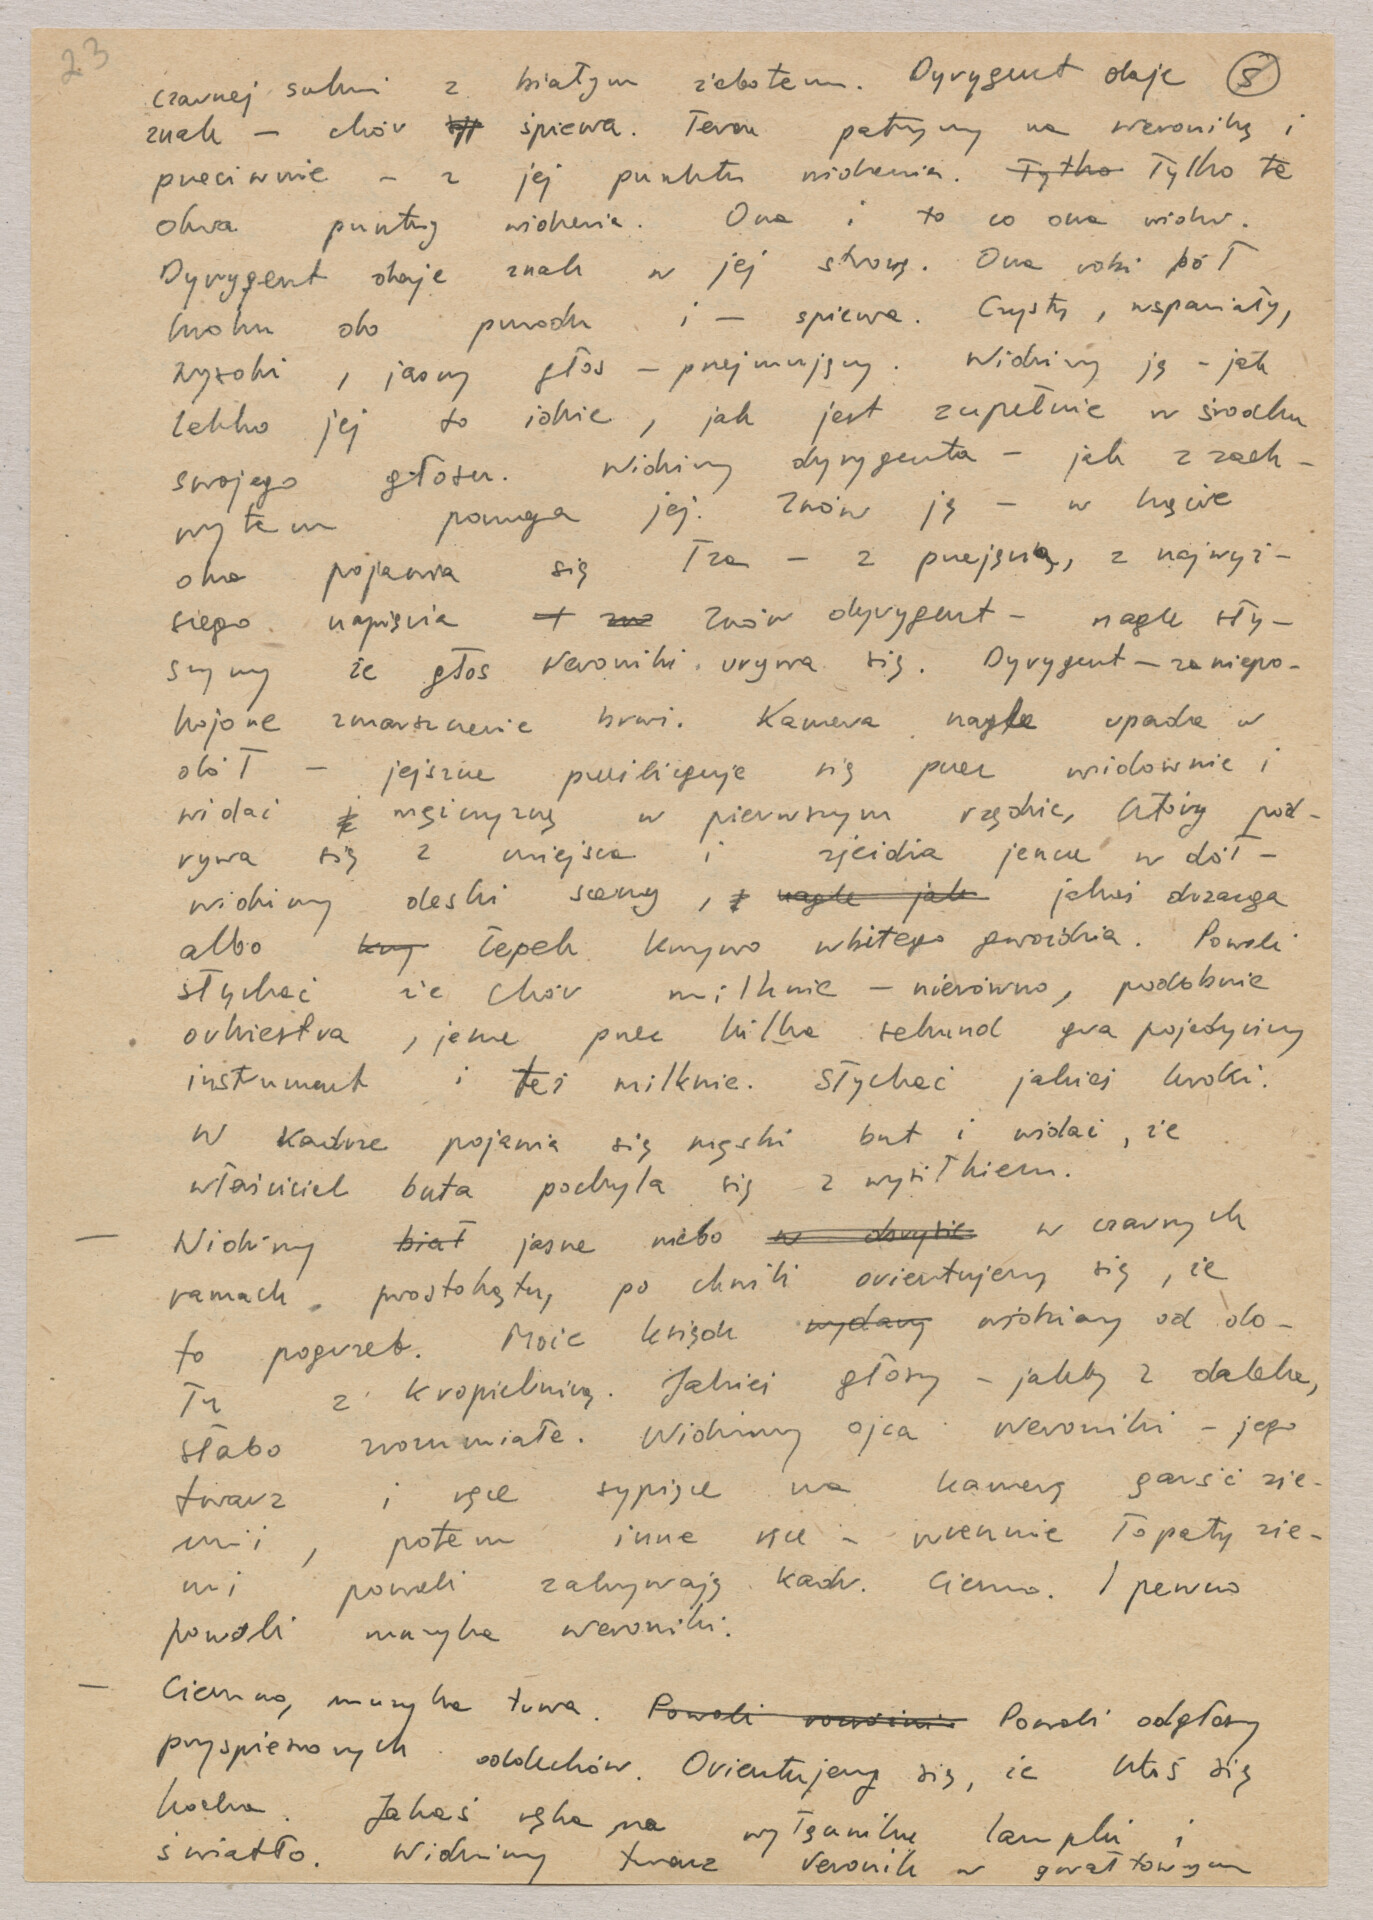 23
czarnej sukni z białym żabotem. Dyrygent daje 8
znak – chór śpiewa. Teraz patrzymy na Weronikę i
przeciwnie – z jej punktu widzenia. Tylko Tylko te
dwa punkty widzenia. Ona i to co ona widzi.
Dyrygent daje znak w jej stronę. Ona robi pół
kroku do przodu i – śpiewa. Czysty, wspaniały,
wysoki, jasny głos – przejmujący. Widzimy ją – jak
lekko jej to idzie, jak jest zupełnie w środku
swojego głosu. Widzimy dyrygenta – jak z zach-
wytem pomaga jej. Znów ją – w kącie
oka pojawia się łza – z przejęcia, z najwyż-
szego napięcia Znów dyrygent – nagle sły-
szymy że głos Weroniki urywa się. Dyrygent – zaniepo-
kojone zmarszczenie brwi. Kamera nagle upada w
dół – jeszcze prześlizguje się przez widownię i
widać mężczyznę w pierwszym rzędzie, który pod-
rywa się z miejsca i zjeżdża jeszcze w dół –
widzimy deski sceny, nagle jak jakaś drzazga
albo krzy łepek krzywo wbitego gwoździa. Powoli
słychać że chór milknie – nierówno, podobnie
orkiestra, jeszcze przez kilka sekund gra pojedynczy
instrument i też milknie. Słychać jakieś kroki.
W kadrze pojawia się męski but i widać, że
właściciel buta pochyla się z wysiłkiem.
– Widzimy biał jasne niebo w czarnych
ramach prostokątu, po chwili orientujemy się, że
to pogrzeb. Może ksiądz widziany od do-
łu z kropielnicą. Jakieś głosy – jakby z daleka,
słabo zrozumiałe. Widzimy ojca Weroniki – jego
twarz i ręce sypiące na kamerę garść zie-
mi, potem inne ręce – wreszcie łopaty zie-
mi powoli zakrywają kadr. Ciemno. I pewno
powoli muzyka Weroniki.
– Ciemno, muzyka trwa. Powoli Powoli odgłosy
przyspieszonych oddechów. Orientujemy się, że ktoś się
kocha. Jakaś ręka na wyłączniku lampki i
światło. Widzimy twarz Veronik w gwałtownym